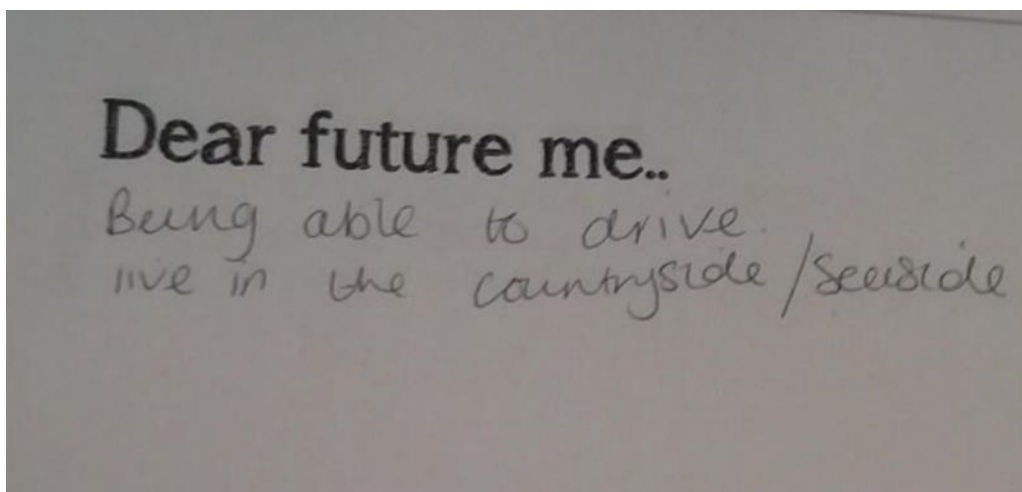 Dear future me..
Being able to drive.
live in the countryside/seaside